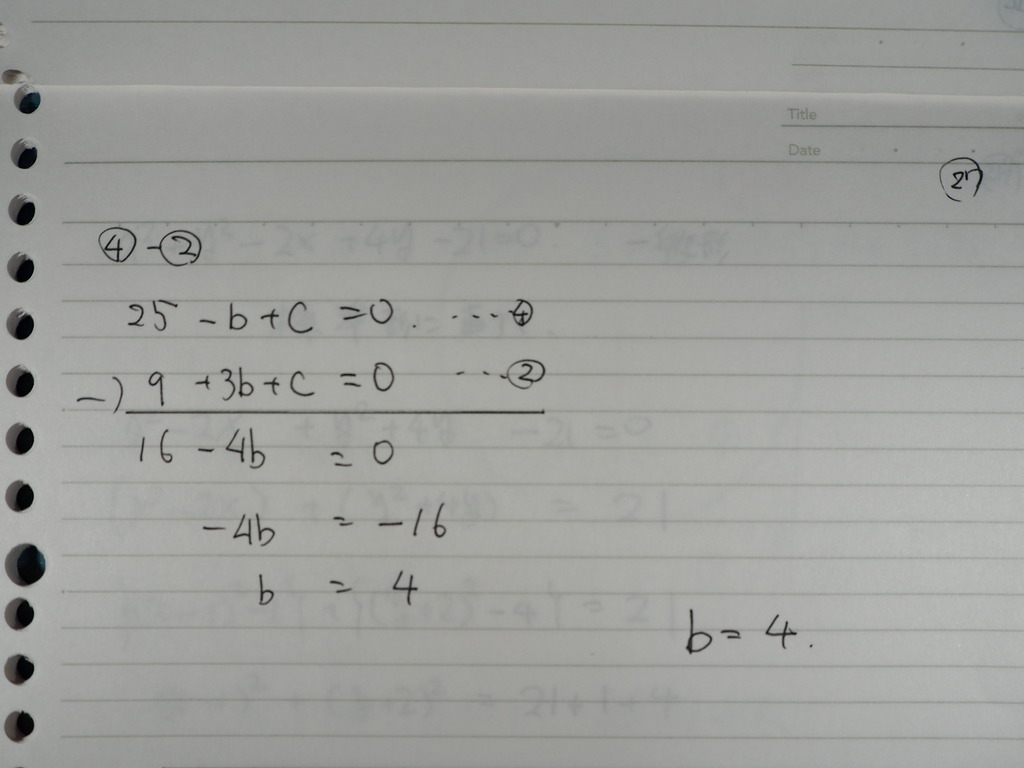 Title
Date
④-②
25 -b+c =0. ....④
-) 9 +3b+c =0 ...②
16 -4b = 0
-4b = -16
b = 4
b= 4.